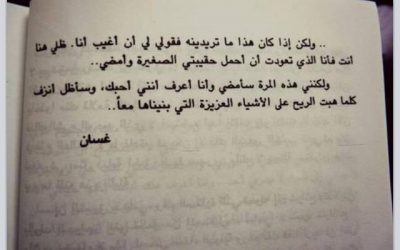 .. ولكن إذا كان هذا ما تريدينه فقولي لي أن أغيب أنا. ظلي هنا
أنت فأنا الذي تعودت أن أحمل حقيبتي الصغيرة وأمضي..
ولكنني هذه المرة سأمضي وأنا أعرف أنني أحبك، وسأظل أنزف
كلما هبت الريح على الأشياء العزيزة التي بنيناها معاً..
غسان